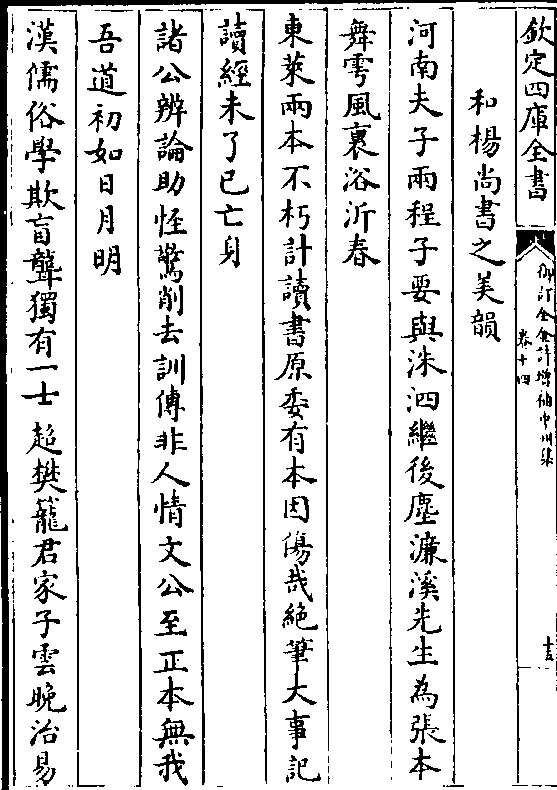 欽定四庫全書
御訂全金詩增補中州集
卷十四
和楊尚書之美韻
河南夫子兩程子要與洙泗繼後塵濂溪先生為張本
舞雩風裏浴沂春
東萊兩本不朽計讀書原委有本因傷哉絶筆大事記
讀經未了已亡身
諸公辨論助怪驚削去訓傳非人情文公至正本無我
吾道初如日月明
漢儒俗學欺盲聾獨有一士超樊籠君家子雲晚治易